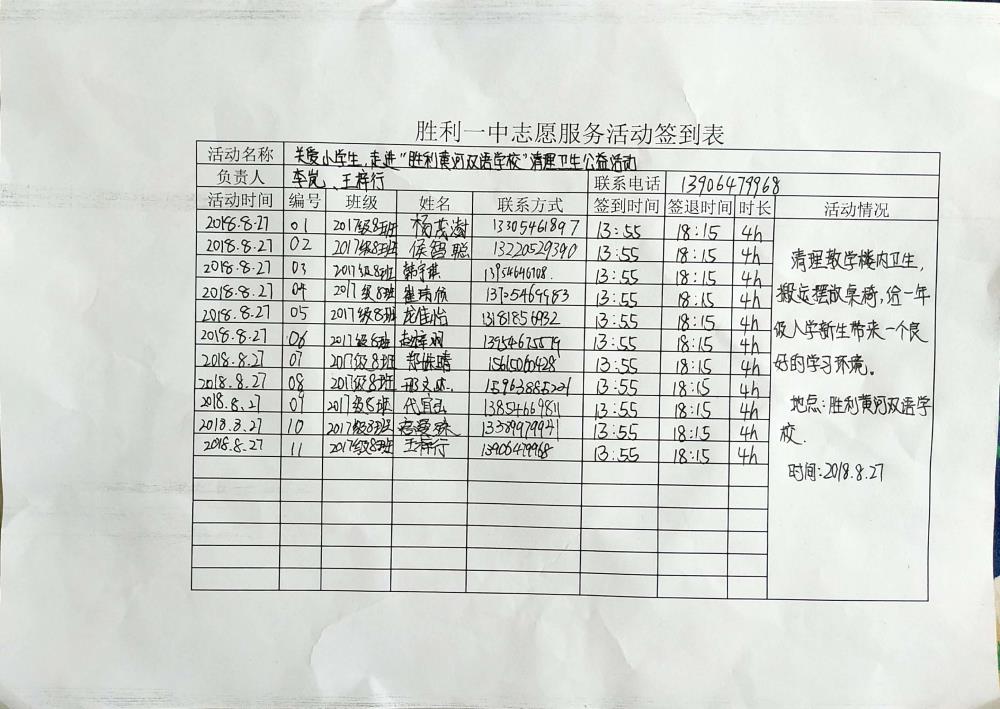 胜利一中志愿服务活动签到表
活动名称 关爱小学生,走进"胜利黄河双语学校"清理卫生公益活动
负责人 李岚、王梓行 联系电话 13906479968
活动时间 编号 班级 姓名 联系方式 签到时间 签退时间 时长 活动情况
2018.8.27 01 2017级8班 杨茂澍 13305461897 13:55 18:15 4h
2018.8.27 02 2017级8班 侯智聪 13220529390 13:55 18:15 4h
2018.8.27 03 2017级8班 13:55 18:15 4h
2018.8.27 04 2017级8班 13:55 18:15 4h
2018.8.27 05 2017级8班 龙佳怡 13181856932 13:55 18:15 4h
2018.8.27 06 2017级8班 13954675579 13:55 18:15 4h
2018.8.27 07 2017级8班 15615060428 13:55 18:15 4h
2018.8.27 08 2017级8班 15963885221 13:55 18:15 4h
2018.8.27 09 2017级8班 代宜弘 13854669811 13:55 18:15 4h
2018.8.27 10 2017级8班 13589979941 13:55 18:15 4h
2018.8.27 11 2017级8班 王梓行 13906479968 13:55 18:15 4h
清理教学楼内卫生,
搬运摆放桌椅,给一年
级入学新生带来一个良
好的学习环境。
地点:胜利黄河双语学
校.
时间:2018.8.27